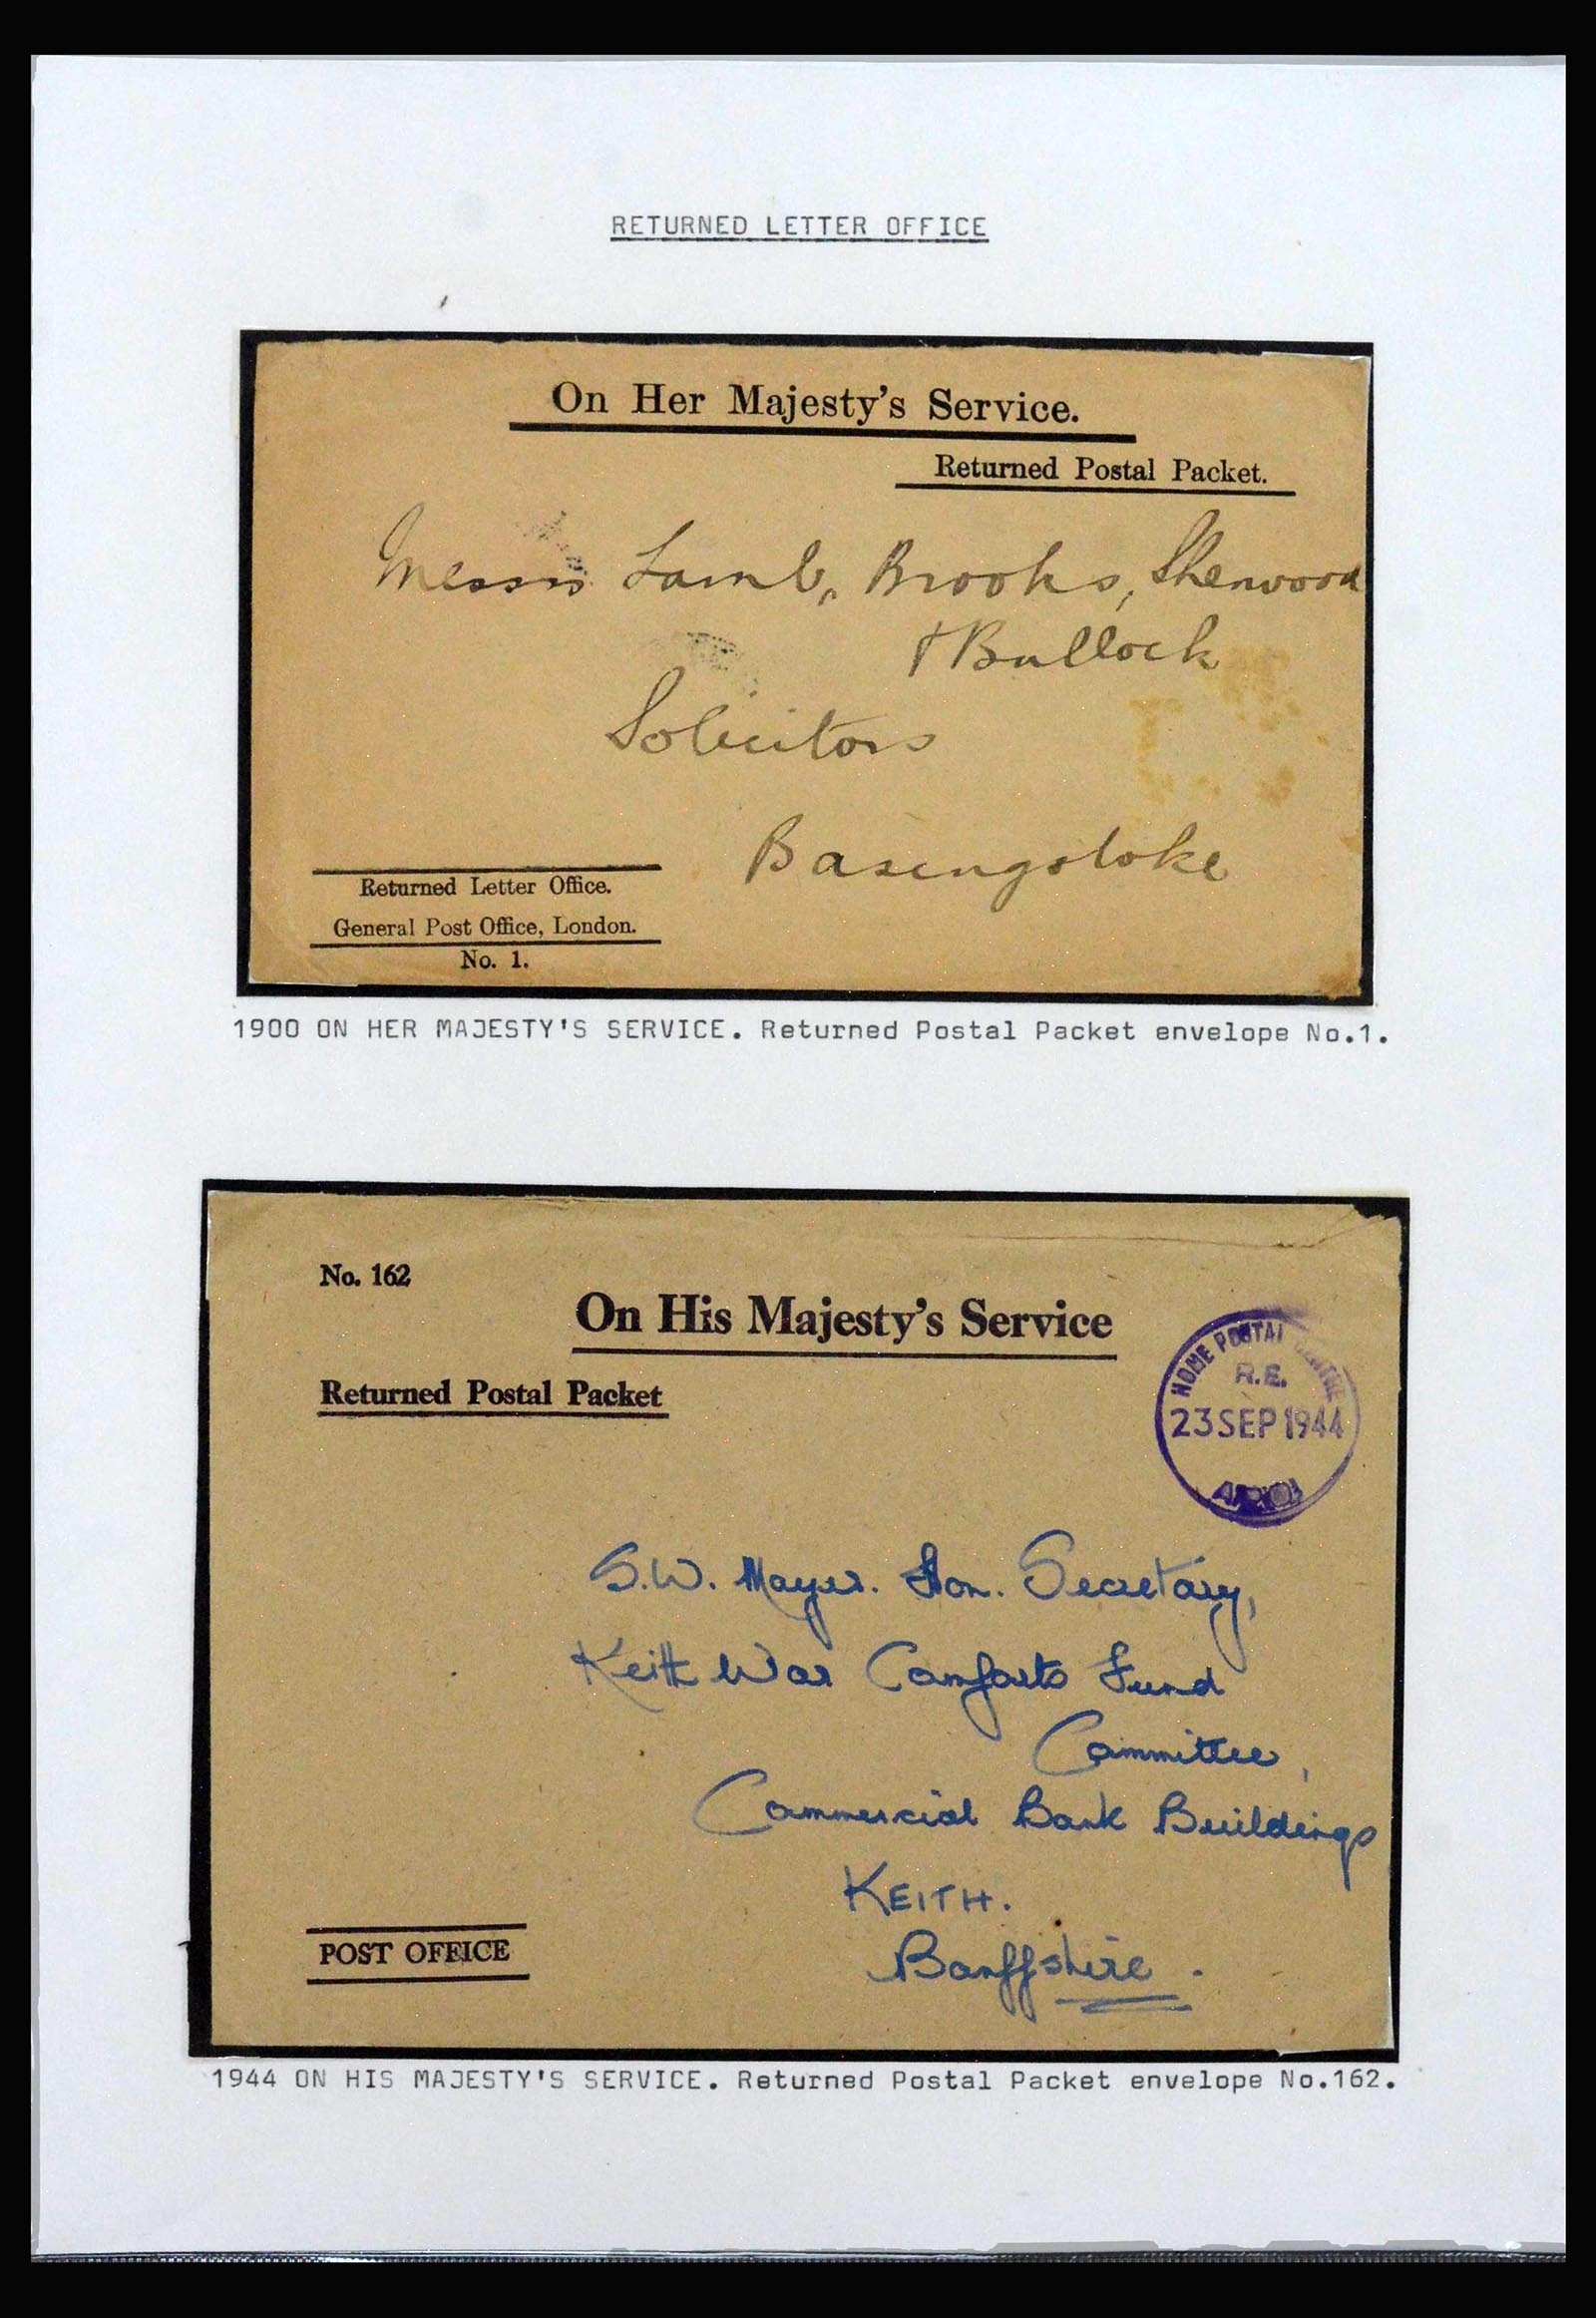 RETURNED LETTER OFFICE
On Her Majesty's Service.
Returned Postal Packet.
Messrs Lamb, Brooks, Sherwood
& Bullock
Solicitors
Basingstoke
Returned Letter Office.
General Post Office, London.
No. 1.
1900 ON HER MAJESTY'S SERVICE. Returned Postal Packet envelope No.1.
No. 162
On His Majesty's Service
HOME POSTAL CENTRE
R.E.
23 SEP 1944
Returned Postal Packet
S.W. Mayer. Hon. Secretary,
Keith War Comforts Fund
Committee,
Commercial Bank Buildings
KEITH.
Banffshire.
POST OFFICE
1944 ON HIS MAJESTY'S SERVICE. Returned Postal Packet envelope No.162.